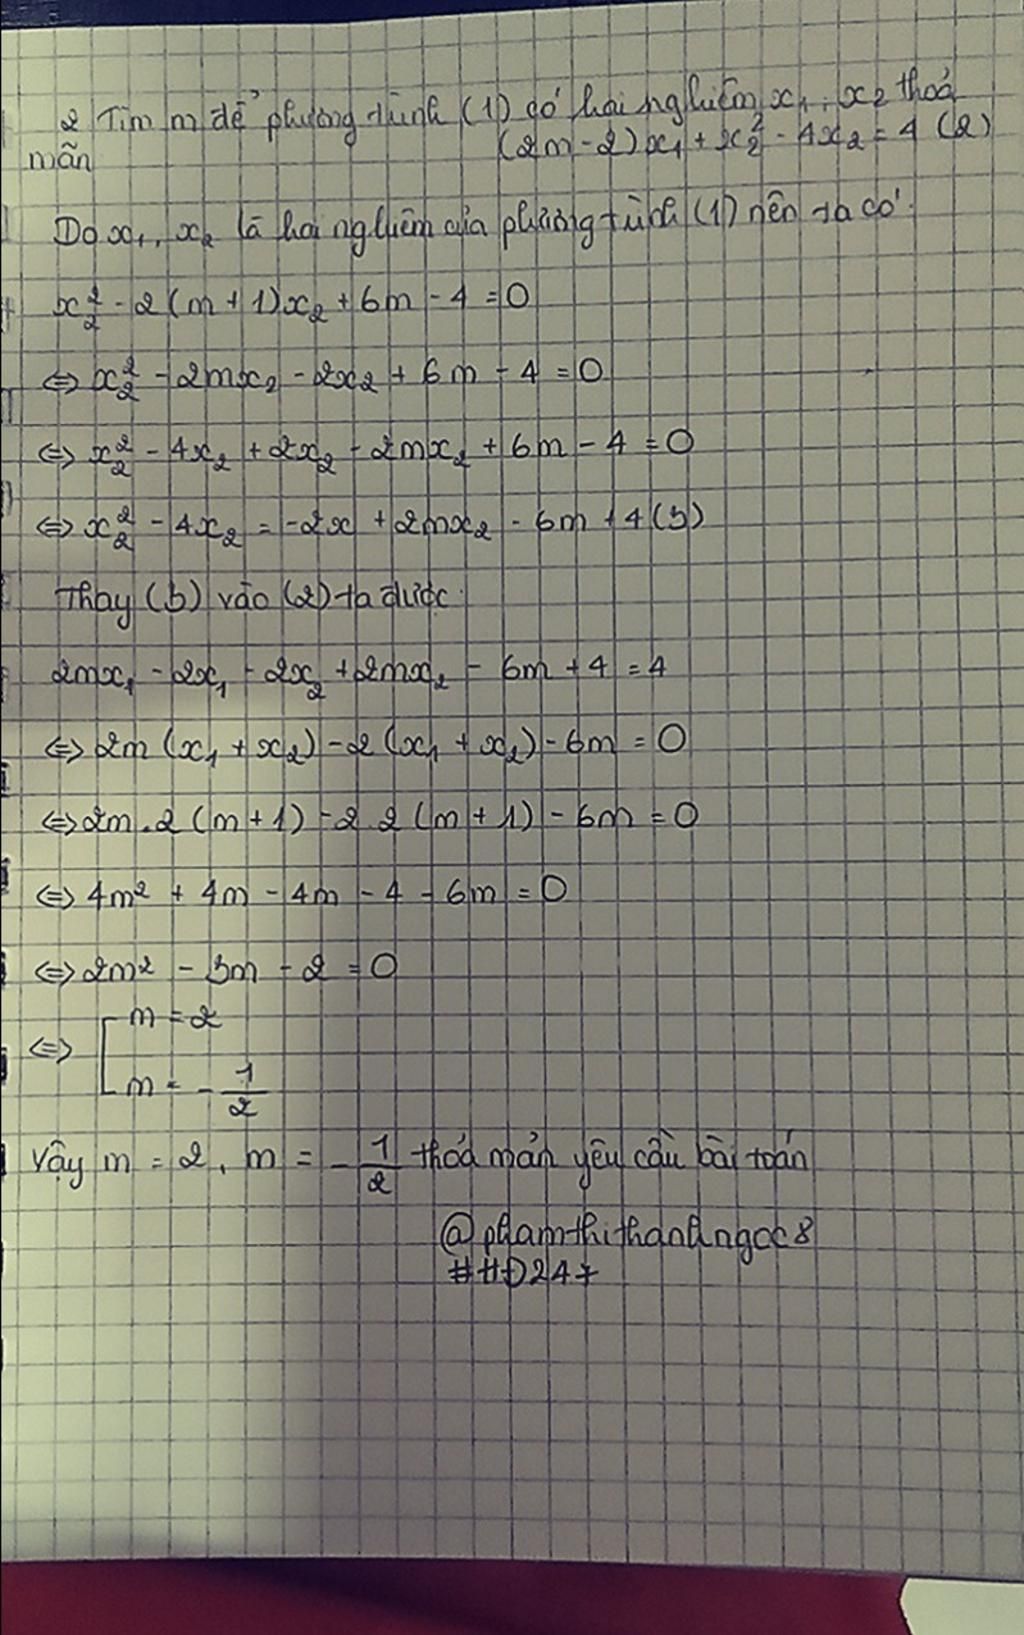 2 Tìm m để phương trình (1) có hai nghiệm x₁, x₂ thoả
mãn (2m-2)x₁ + x₂² - 4x₂ = 4 (2)
Do x₁, x₂ là hai nghiệm của phương trình (1) nên ta có:
x₂² - 2(m+1)x₂ + 6m - 4 = 0
⇔ x₂² - 2mx₂ - 2x₂ + 6m - 4 = 0
⇔ x₂² - 4x₂ + 2x₂ - 2mx₂ + 6m - 4 = 0
⇔ x₂² - 4x₂ = -2x + 2mx₂ - 6m + 4 (3)
Thay (3) vào (2) ta được:
2mx₁ - 2x₁ - 2x₂ + 2mx₂ - 6m + 4 = 4
⇔ 2m (x₁ + x₂) - 2 (x₁ + x₂) - 6m = 0
⇔ 2m.2 (m+1) - 2.2 (m+1) - 6m = 0
⇔ 4m² + 4m - 4m - 4 - 6m = 0
⇔ 2m² - 3m - 2 = 0
⇔ [ m = 2
m = -1/2
Vậy m = 2, m = -1/2 thoả mãn yêu cầu bài toán
@phamthithanhngoc8
#HD247